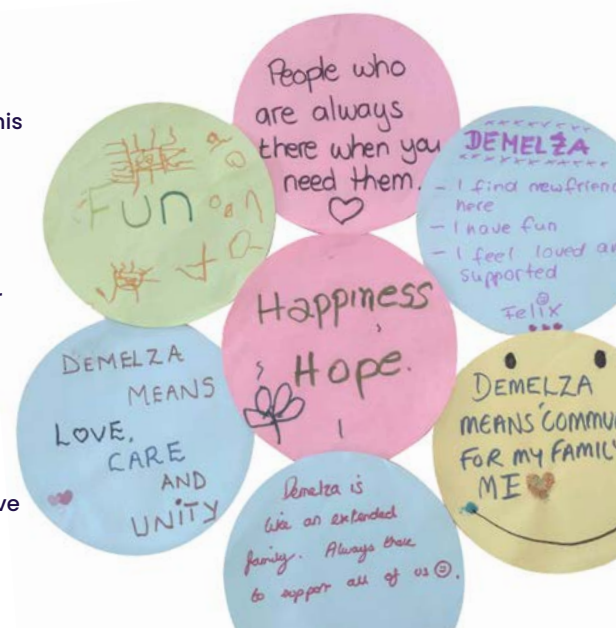 his
ve
People who
are always
there when you
need them.
Fun
DEMELZA
- I find new frien
here
- I have fun
- I feel loved an
supported
Felix
Happiness
Hope.
DEMELZA
MEANS
LOVE,
CARE
AND
UNITY
DEMELZA
MEANS COMMU
FOR MY FAMIL
ME
Demelza is
like an extended
family. Always there
to support all of us